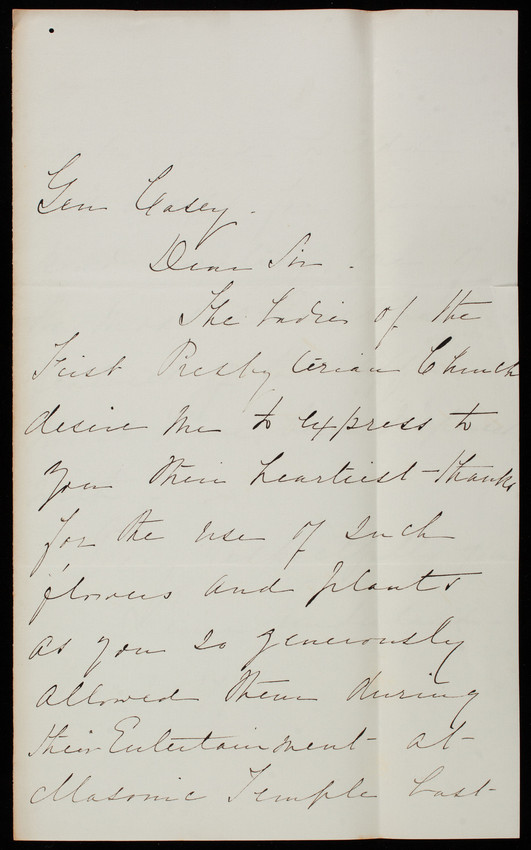 Gen Casey.
Dear Sir.
The Ladies of the
First Presbyterian Church
desire me to express to
you their heartiest thanks
for the use of such
flowers and plants
as you so generously
allowed them during
their Entertainment at
Masonic Temple Last